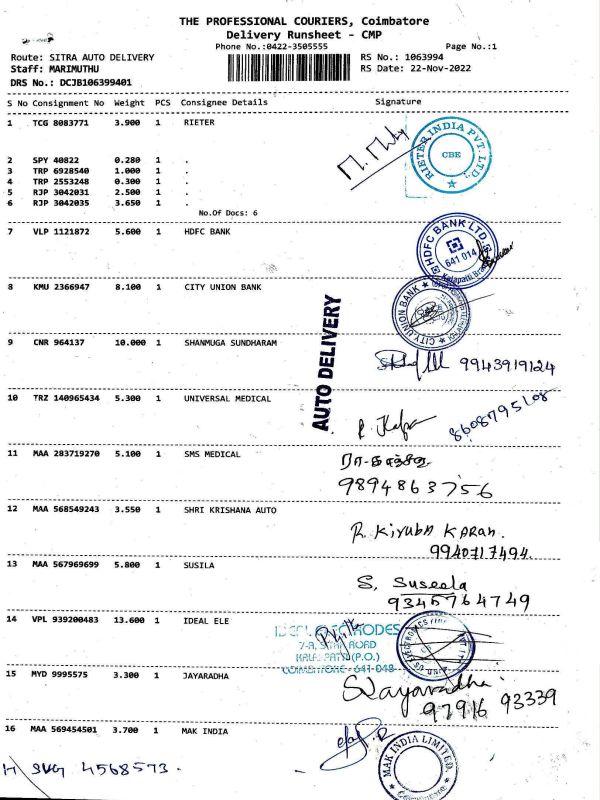 THE PROFESSIONAL COURIERS, Coimbatore
Delivery Runsheet - CMP
Phone No.:0422-3505555
Page No.:1
Route: SITRA AUTO DELIVERY
RS No.: 1063994
Staff: MARIMUTHU
RS Date: 22-Nov-2022
DRS No.: DCJB106399401
S No Consignment No Weight PCS Consignee Details Signature
1 TCG 8083771 3.900 1 RIETER
RIETER INDIA PVT. LTD.,
CBE
2 SPY 40822 0.280 1 .
3 TRP 6928540 1.000 1 .
4 TRP 2553248 0.300 1 .
5 RJP 3042031 2.500 1 .
6 RJP 3042035 3.650 1 .
No.Of Docs: 6
7 VLP 1121872 5.600 1 HDFC BANK
HDFC BANK LTD.
641 014
8 KMU 2366947 8.100 1 CITY UNION BANK
CITY UNION BANK
AUTO DELIVERY
9 CNR 964137 10.000 1 SHANMUGA SUNDHARAM
9943919124
10 TRZ 140965434 5.300 1 UNIVERSAL MEDICAL
8608795108
11 MAA 283719270 5.100 1 SMS MEDICAL
9894863756
12 MAA 568549243 3.550 1 SHRI KRISHANA AUTO
R. Kirubakaran.
9940717494.
13 MAA 567969699 5.800 1 SUSILA
S. Suseela
9345764749
14 VPL 939200483 13.600 1 IDEAL ELE
COIMBATORE - 641-048
15 MYD 9995575 3.300 1 JAYARADHA
97916 93339
16 MAA 569454501 3.700 1 MAK INDIA
MAK INDIA LIMITED.
4568573.